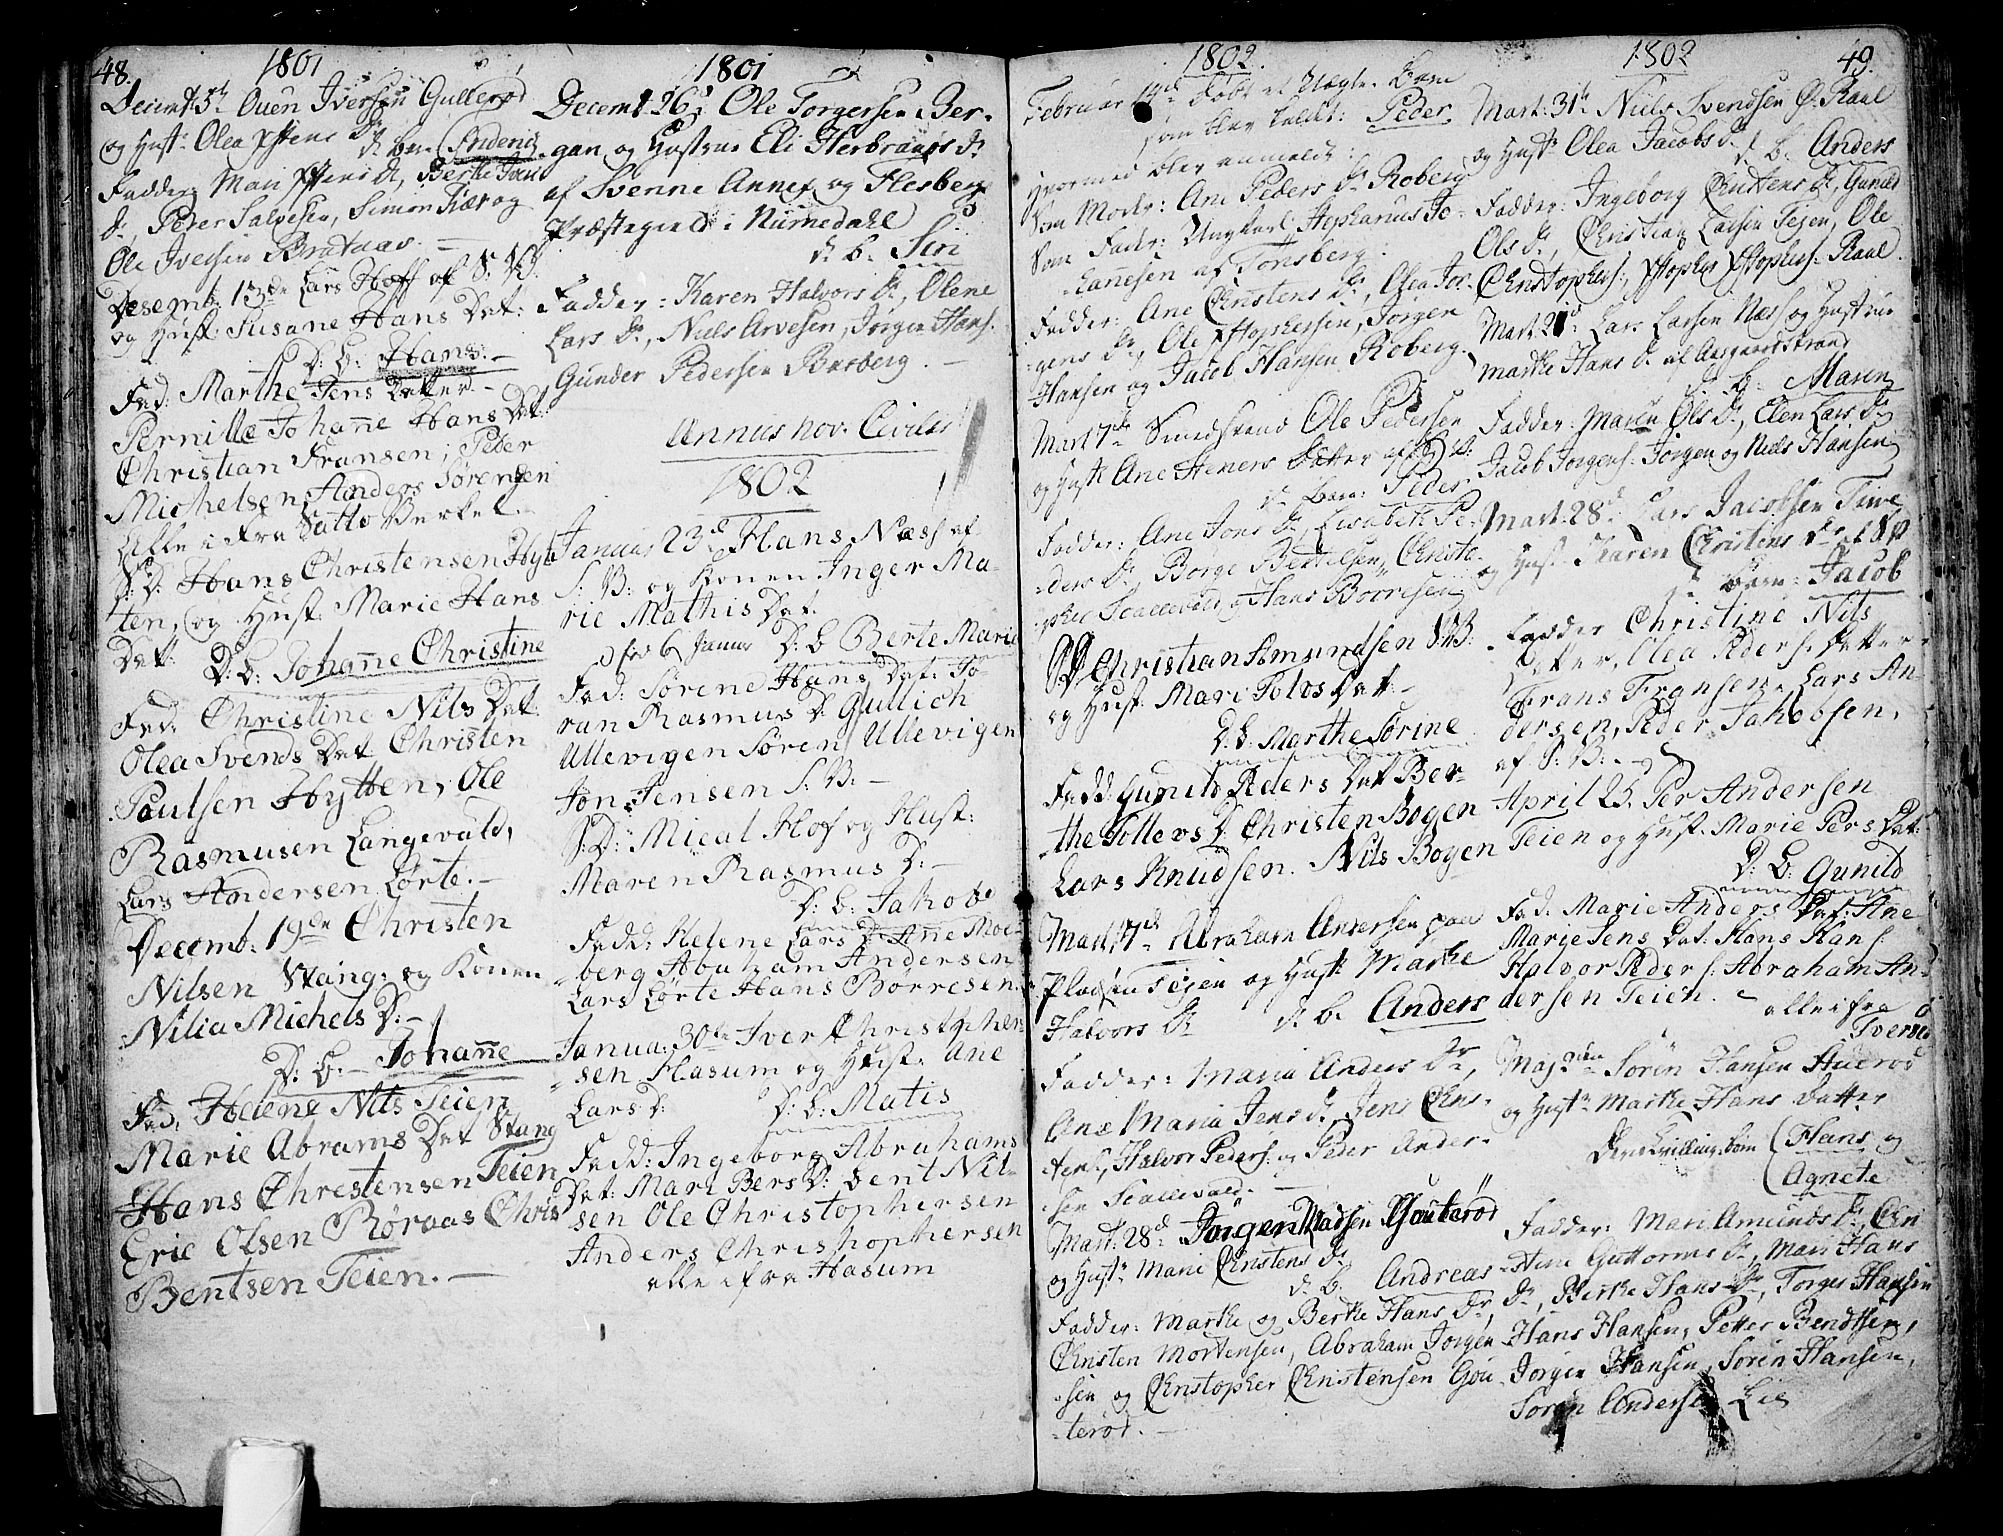 48.
1801
Decemt 5te Ouen Iversen Gullerød
og Hustr Olea
d. barn Anderid
Fadder: Mari
Dr, Peder Salvesen, Simon Kiær og
Ole Iversen Brataas.
Desemb: 13de Lars Hoff af S: V:
og Hust: Susane Hans Det:
D: b: Hans:
Fad: Marthe Jens Detter
Pernille Johañe Hans Det:
Christian Fransen, Peder
Michelsen, Anders Sörensen
alle i fra Vallø Verket
S: D: Hans Christensen Hyt
ten, og Hust: Marie Hans
Det:
D: b: Johañe Christine
Fad: Christine Nils Det:
Olea Svends Det Christen
Paulsen Hytten, Ole
Rasmusen Langevald,
Lars Andersen Lørte.
Decemb: 19de Christen
Nilsen Stang: og Konen
Nilia Michels D:
D: b: Johañe
Fad: Helene Nils Teien
Marie Abrams Det Stang
Hans Christensen Teien
Eric Olsen Røraas Chris
Bentsen Teien.
1801
Decemt 26d Ole Torgersen Ber-
gan og Hustrue Eli Herbrands Dr
af Svenne Annex og Flesberg
Præstegield i Numedahl
d. b. Siri
Fadder: Karen Halvors Dr, Olene
Lars Dr, Niels Arvesen, Jørgen Hans.
Gunder Pedersen Barberg.
Annus nov. Civilis
1802
Januar 23d Hans Næss af
S: B: og Konen Inger Ma-
rie Mathis Det
D: b: Berte Marie
Fad: Sørine Hans Det: To-
ran Rasmus D: Gullich
Ullevigen Søren Ullevigen
Jon Jensen S: B:
S: D: Mical Hof og Hust:
Maren Rasmus D:
D: b: Jakob
Fadd: Helene Lars D: Añe Moe-
berg Abraham Andersen
Lars Lørte Hans Børresen.
Janua: 30te Iver Christopher
sen Hasum og Hust: Ane
Lars D:
D: b: Matis
Fadd: Ingeborg Abrahams
Det: Mari Bers D: Bent Nil-
sen Ole Christophersen
Anders Christophersen
alle ifra Hasum
1802.
Februar født et Uægte Barn
som blev kaldt: Peder
hvormed blev anmeldt:
Som Moder: Ane Peders Dr Roberg
Som Fader: Ungkarl Stephanus Jo-
hannesen af Tønsberg:
Fadder: Ane Christens Dr, Olea Jør-
gens Dr, Ole Jørgen
Hansen og Jacob Hansen Roberg.
Mart 7de Smedsrand Ole Pedersen
og Hustr Ane Steners Datter af
d. barn: Peder
Fadder: Ane Jons Dr, Elisabeth Pe-
ders Dr, Børge Bertelsen, Christo-
pher Scallevald og Hans Börresen
S D Christian Amundsen S: B:
og Hust: Mari Tolvs Det:
D: b: Marthe Sørine
Fadd: Gunild Peders Det Ber-
the Tollevs D: Christen Bogen
Lars Knudsen. Nils Bogen
Mart 17d Abraham Andersen paa
Pladsen Tejen og Hustr Marthe
Halvors Dr
d. b. Anders
Fadder: Maria Anders Dr,
Ane Maria Jens d. Jens Chris-
tens, Halvor Peders: og Peder Ander-
sen Scallevald.
Mart. 28d Jørgen Madsen Gouterød
og Hustr Marie Christens Dr
d. b. Andreas
Fadder: Marthe og Berthe Hans Dr,
Christen Mortensen, Abraham Jørgen
sen og Christopher Christensen Gou-
terød.
1802
49.
Mart. 31te Niels Svendsen Ø. Raal
og Hustr Olea Jacobs d.
d. b. Anders
Fadder: Ingeborg Christens Dr, Gunild
Ols Dr, Christian Larsen Tejen, Ole
Christophers:, Raal.
Mart. 21d Lars Larsen Næss og Hustrue
Marthe Hans Dr af Aasgaardstrand
b. Maren
Fadder: Maren Ols Dr, Elen Lars Dr
Jacob Jørgens: Jørgen og Niels Hansen
Mart. 28d Lars Jacobsen
og Hust: Karen Christens Dr af
Barn: Jacob
Fadder Christine Nils
Detter, Olea Peders Detter
Frans Fransen, Lars An-
dersen, Peder Jakobsen,
af S: B:
April 25. Per Andersen
Teien og Hust: Marie Pers Det:
D: b: Gunild
Fad: Marie Anders Det: Ane
Marie Jens Det: Hans Hans:
Halvor Peders: Abraham An-
dersen Teien.
alle i fra
Tversø
Maj 2den Søren Hansen
og Hustr Marthe Hans Datter
Deres Tvilling børn (Hans og
(Agnete
Fadder: Mari Amunds Dr, Chri
stine Guttorms Dr, Mari Hans
Dr, Berthe Hans Dr, Torger Hansen
Hans Hansen, Petter Bendtsen,
Jørgen Hansen, Søren Hansen,
Søren Andersen Lie